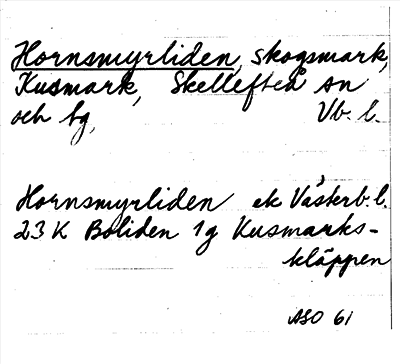 Hornsmyrliden, skogsmark,
Kusmark, Skellefteå sn
och tg, Vb. l.
Hornsmyrliden ek Västerb. l.
23 K Boliden 1g Kusmarks-
kläppen
ASO 61